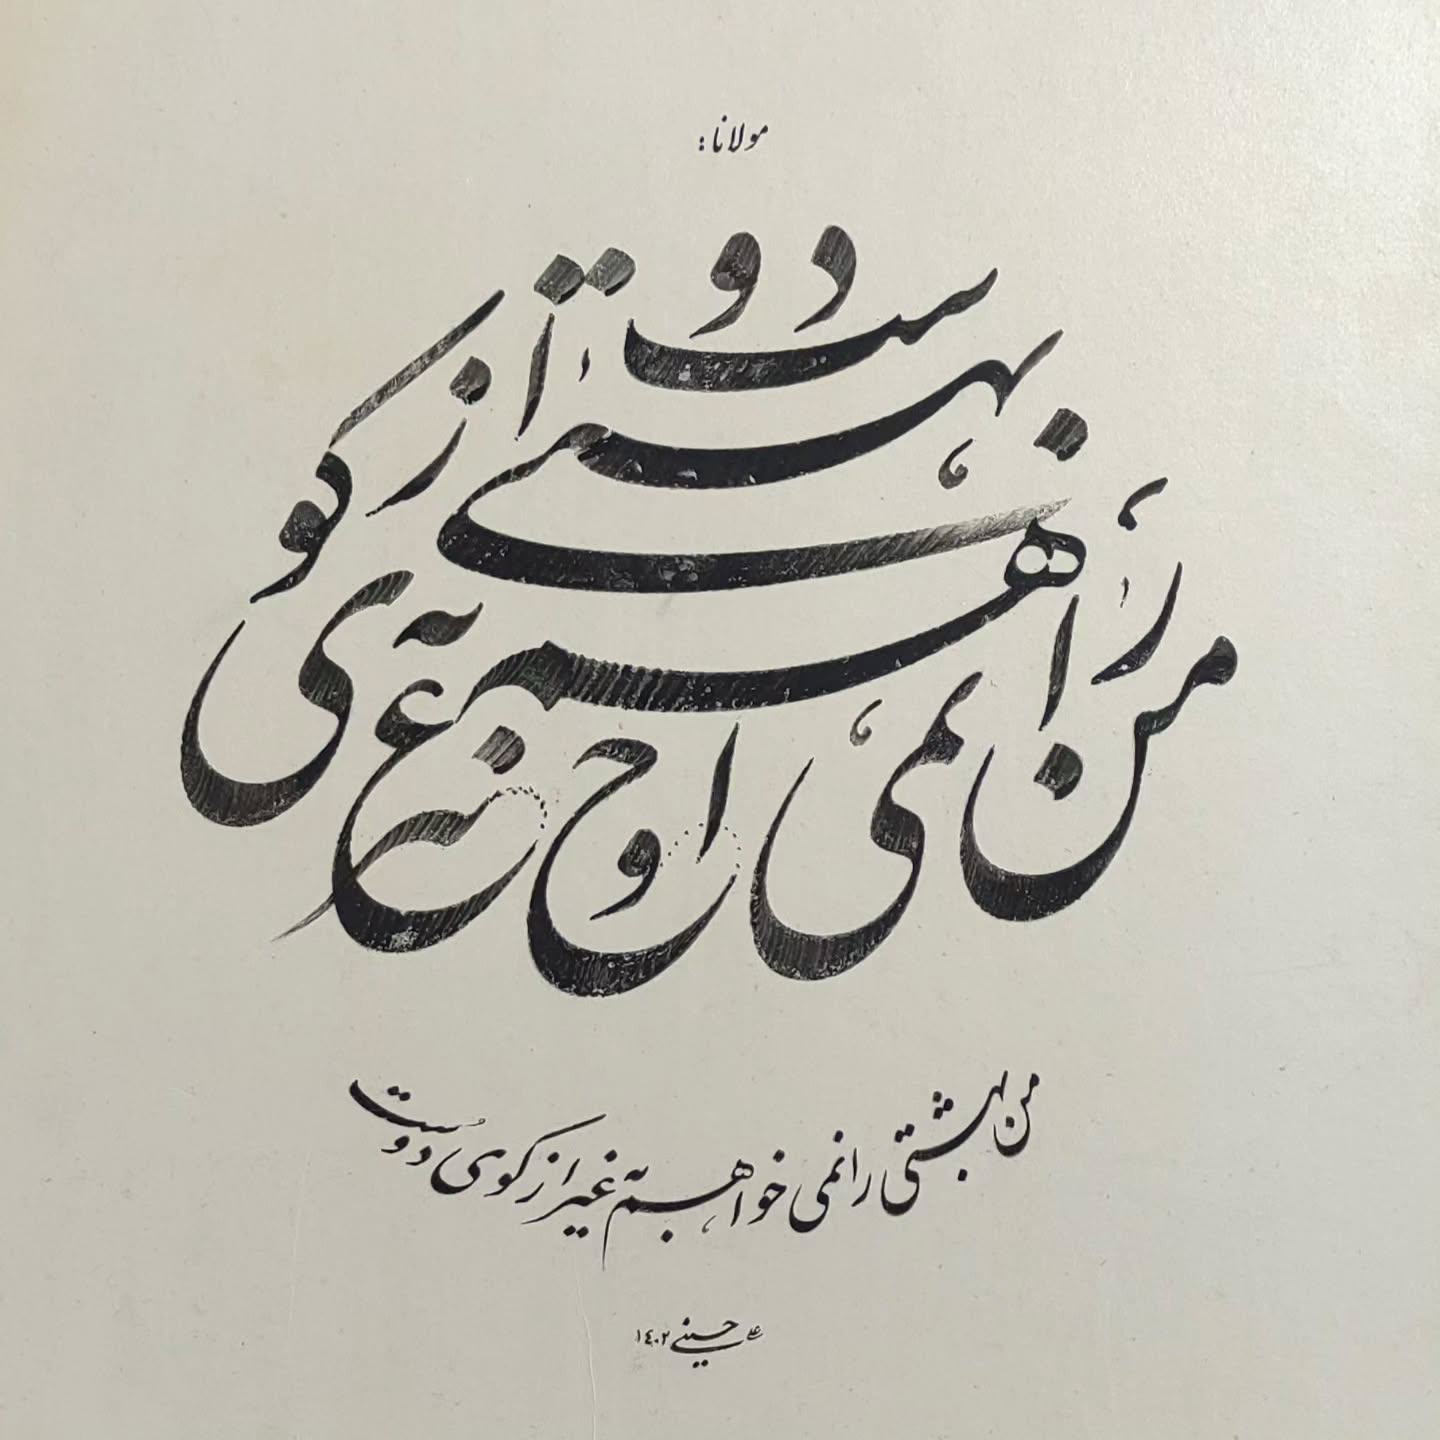 مولانا:
من بهشتی را نمی خواهم به غیر از کوی دوست
من بهشتی را نمی خواهم به غیر از کوی دوست
علی حسینی ۱۴۰۲